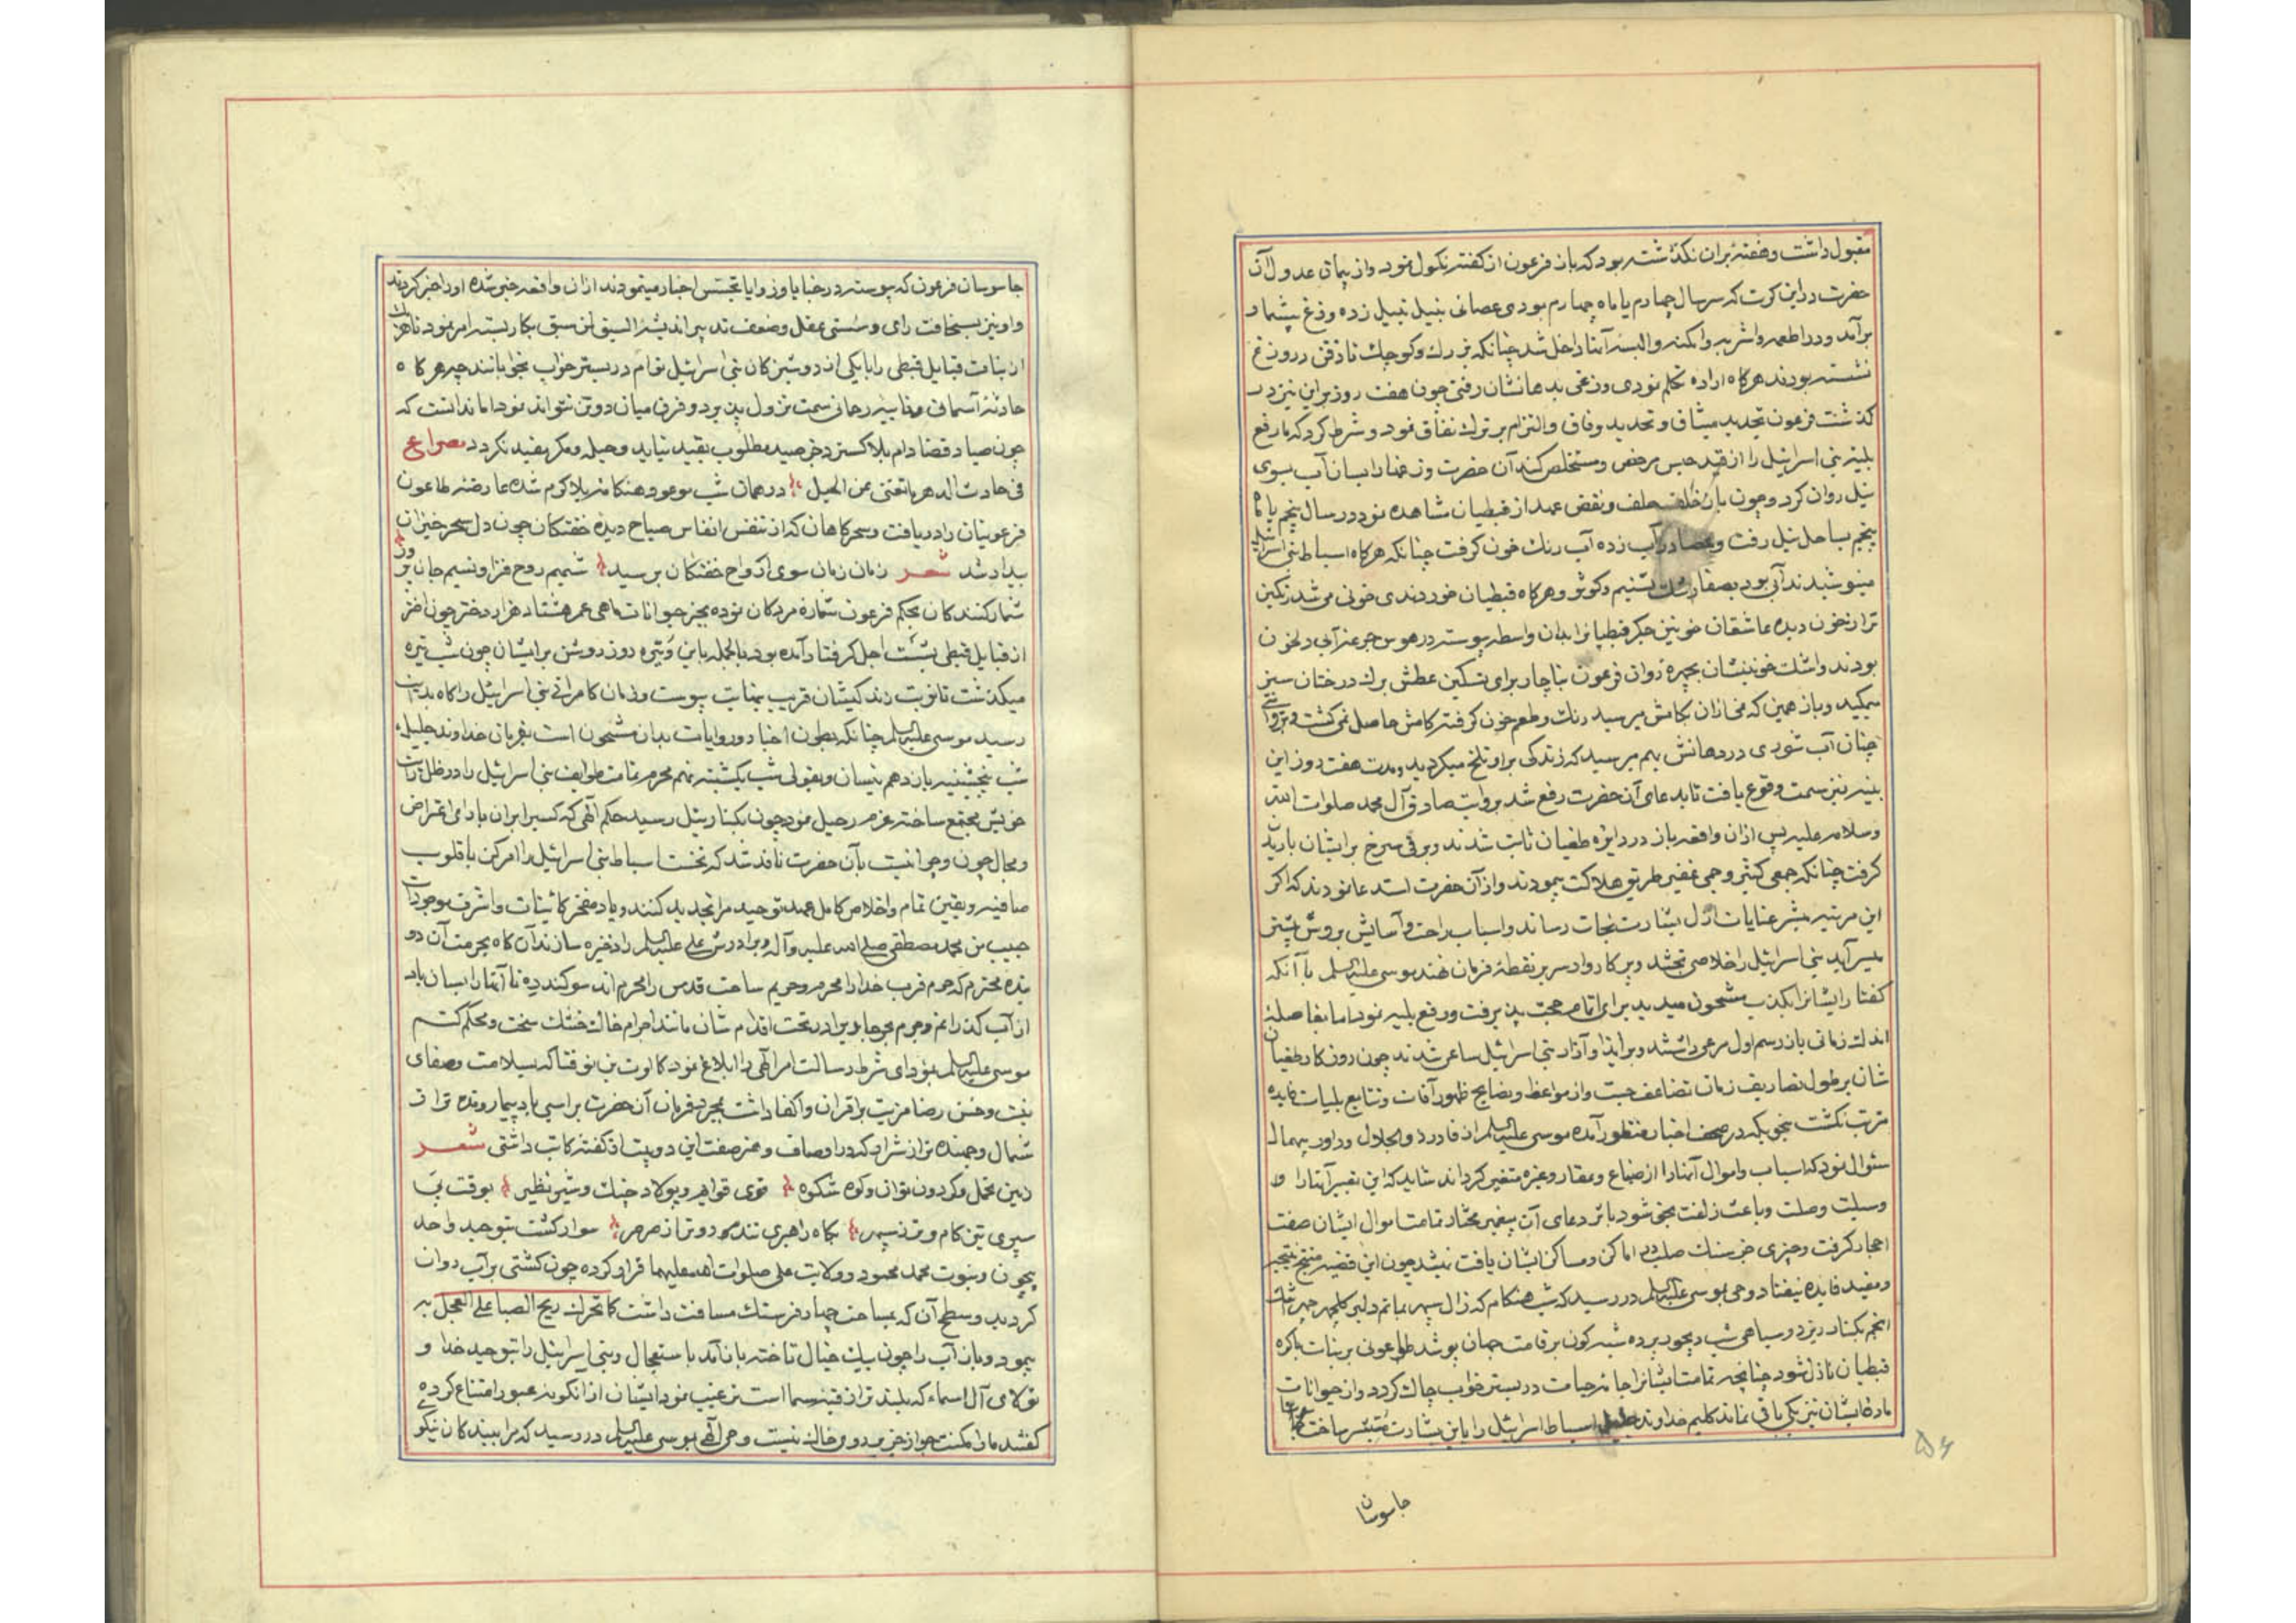 مقبول داشت و هفتهٔ بران نگذشته بود که باز فرعون از گفته نکول نمود و از پیمان عدول آن
حضرت در این کرت که سر سال چهارم یا ماه چهارم بودی عصانی بنیل نبیل زده وزغ بیشمار
برآمد و در اطعمه و اشربه و امکنه و البسه آنها داخل شد چنانکه بزرگ و کوچک تا ذقن درون
نشسته بودند هرگاه اراده تکلم نمودی وزغی بدهانشان رفتی چون هفت روز براین نیز در
گذشت فرعون تجدید میثاق و تحدید وفاق و التزام بر ترک نفاق نمود و شرط کرد که با رفع
بلیه بنی اسرائیل را از قید حبس مرخص و مستخلص کند آن حضرت وزغها را بسان آب بسوی
نیل روان کرد و چون باز خلف حلف و نقض عهد از قبطیان مشاهده نمود در سال پنجم یا ماه
پنجم بساحل نیل رفت و عصا در آب زده آب رنگ خون گرفت چنانکه هرگاه اسباط بنی اسرائیل
مینوشیدند آبی بود بصفا رشک تسنیم و کوثر و هرگاه قبطیان خوردندی خونی می شد رنگین
تر از خون دیده عاشقان خونین جگر قبطیانرا بدان واسطه پیوسته در هوس جرعه آبی دل خون
بودند و اشک خونینشان بچهره روان فرعون بناچار برای تسکین عطش برگ درختان سبز
میمکید و باز همین که نمی ازان بکامش میرسید رنگ و طعم خون گرفته کامش حاصل نمی گشت
چنان آب شوری در دهانش بهم میرسید که زندگی براو تلخ میگردید و مدت هفت روز این
بلیه نیز سمت وقوع یافت تا بدعای آن حضرت رفع شد بروایت صادق آل محمد صلوات الله
و سلامه علیه پس ازان واقعه باز در دایره طغیان ثابت شدند و برفی سرخ برایشان باریدن
گرفت چنانکه جمعی کثیر و جمی غفیر طریق هلاکت پیمودند و از آن حضرت استدعا نمودند که اگر
این مرتبه مبشر عنایات ازل بشارت نجات رساند و اسباب راحت و آسایش بروش پیشین
میسر آید بنی اسرائیل را خلاصی بخشد و پرکاروار سر بر نقطهٔ فرمان نهد موسی علیه السلم با آنکه
گفتار ایشانرا بکذب مشحون میدید برای اتمام حجت پذیرفت و رفع بلیه نمود اما بفاصلهٔ
اندک زمانی باز رسم اول مرعی داشتند و بر ایذا و آزار بنی اسرائیل ساعی شدند چون روزگار طغیان
شان برطول تصاریف زمان تضاعف جست و از مواعظ و نصایح ظهور آفات و تتابع بلیات فایده
مترتب نگشت بنحویکه در صحف اخبار منظور آمده موسی علیه السلم از قادر ذوالجلال و داور بیهمال
سئوال نمود که اسباب و اموال آنها را از ضیاع و عقار و غیره متغیر گرداند شاید که این تغییر آنها را
وسیلت وصلت و باعث زلفت بحق شود باثر دعای آن پیغمبر مختار تمامت اموال ایشان صفت
احجار گرفت و چیزی جز سنگ صلب در اماکن و مساکن ایشان یافت نیشد چون این قضیه منتج نتیجه
و مفید فایده نیفتاد وحی بموسی علیه السلم در رسید که شب هنگام که زال سپهر بماتم دلبر گلچهر مهر اشک
انجم بکنار ریزد و سیاهی شب دیجور پرده شبه گون برقامت جهان پوشد طاعونی بر بنات باکره
قبطیان نازل شود چنانچه تمامت ایشانرا جامه حیات در بستر خواب چاک گردد و از حیوانات
مادهٔ ایشان نیز یکی باقی نماند کلیم خداوند جلیل اسباط اسرائیل را باین بشارت مبشر ساخت
جاسوسان
۵۶
جاسوسان فرعون که پیوسته در خبایا و زوایا تجسس اخبار مینمودند ازان واقعه خبر شده او را خبر کردند
و او نیز بسخافت رای و سستی عقل و ضعف تدبیر اندیشهٔ السیق لمن سبق بکار بسته امر نمود تا هریک
از بنات قبایل قبطی را با یکی از دوشیزگان بنی اسرائیل توام در بستر خواب بخوابانند چه هرگاه
حادثهٔ آسمانی و بلیهٔ رحمانی سمت نزول پذیرد و فرق میان دو تن نتواند نمود اما ندانست که
چون صیاد قضا دام بلا گسترد جز صید مطلوب بقید نیاید و حیله و مکر مفید نگردد مصراع
فی حادث الدهر ما تغنی عن الحیل در همان شب موعود هنگامه بلا گرم شده عارضه طاعون
فرعونیان را دریافت و سحرگاهان که از تنفس انفاس صباح دیده خفتگان چون دل سحرخیزان
بیدار شد شعر زمان زمان سوی ارواح خفتگان برسید شمیم روح فزا و نسیم جان پرور
شمارکنندگان بحکم فرعون شمارهٔ مردگان نموده بجز حیوانات ماهی عمر هشتاد هزار دختر چون اختر
از قبایل قبطی بشست اجل گرفتار آمده بود بالجمله باین وتیره روز روشن برایشان چون شب تیره
میگذشت تا نوبت زندگیشان قریب بنهایت پیوست و زمان کامرانی بنی اسرائیل را گاه بدایت
رسید موسی علیه السلم چنانکه بطون اخبار و روایات بدان مشحون است بفرمان خداوند جلیل
شب پنجشنبه پانزدهم نیسان و بقولی شب یکشنبه نهم محرم تمامت طوایف بنی اسرائیل را در ظل رایت
خویش مجتمع ساخته عزم رحیل نمود چون بکنار نیل رسید حکم الهی که کسرا بران یارای اعتراض
و مجال چون و چرا نیست بآن حضرت نافذ شد که نخست اسباط بنی اسرائیل را امر کن با قلوب
صافیه و یقین تمام و اخلاص کامل عهد توحید مرا تجدید کنند و یاد مفخر کائینات و اشرف موجودات
حبیب من محمد مصطفی صلی الله علیه وآله و برادرش علی علیه السلم را ذخیره سازند آن گاه بحرمت آن دو
بنده محترم که حرم قرب خدا را محرم و حریم ساحت قدس را محرم اند سوگند ده تا آنها را بسان باد
از آب گذرانم و جرم بحر جاوید را در تحت اقدام شان مانند اجرام خاک خشک سخت و محکم کنم
موسی علیه السلم بمؤدای شرط رسالت امر الهی را ابلاغ نمود کالوت بن نوفنا که بسلامت و صفای
نیت و حسن رضا مزیت بر اقران و اکفا داشت بمجرد فرمان آن حضرت براسبی باد پیما رونده تر از
شمال و جهنده تر از شرار که در اوصاف و عز صفت این دو بیت از گفته کاتب داشتی شعر
زمین تحمل و گردون توان و کوه شکوه قوی قوایم و پولاد چنگ و شیر نظیر بوقت
سپری تیز کام و تر ز سپهر بگاه راهبری تندرو تر از صرصر سوار گشت بتوحید واحد
بیچون و نبوت محمد محمود و ولایت علی صلوات الله علیهما اقرار کرده چون کشتی برآب روان
گردید و سطح آن که بمساحت چهار فرسنگ مسافت داشت کاتحراف ریح الصبا علی العجل به
پیمود و باز آب را چون پیک خیال تاخته باز آمد باستعجال و بنی اسرائیل را بتوحید خدا و
تولای آل اسماء که بلند تر از قبه سما است ترغیب نمود ایشان از انگونه عبور امتناع کرده
گفتند ما را مکنت جواز جز بر روی خاک نیست وحی الهی بموسی علیه السلم در رسید که مرا ببندگان نیکو